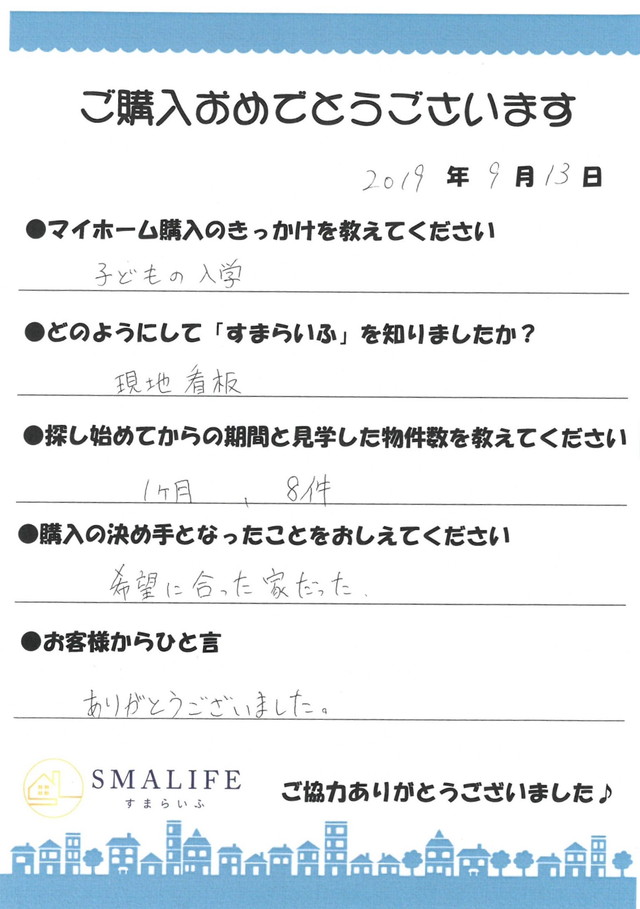 ご購入おめでとうございます
2019 年 9 月 13 日
●マイホーム購入のきっかけを教えてください
子どもの入学
●どのようにして「すまらいふ」を知りましたか？
現地看板
●探し始めてからの期間と見学した物件数を教えてください
1ヶ月 、 8件
●購入の決め手となったことをおしえてください
希望に合った家だった.
●お客様からひと言
ありがとうございました。
SMALIFE
すまらいふ
ご協力ありがとうございました♪